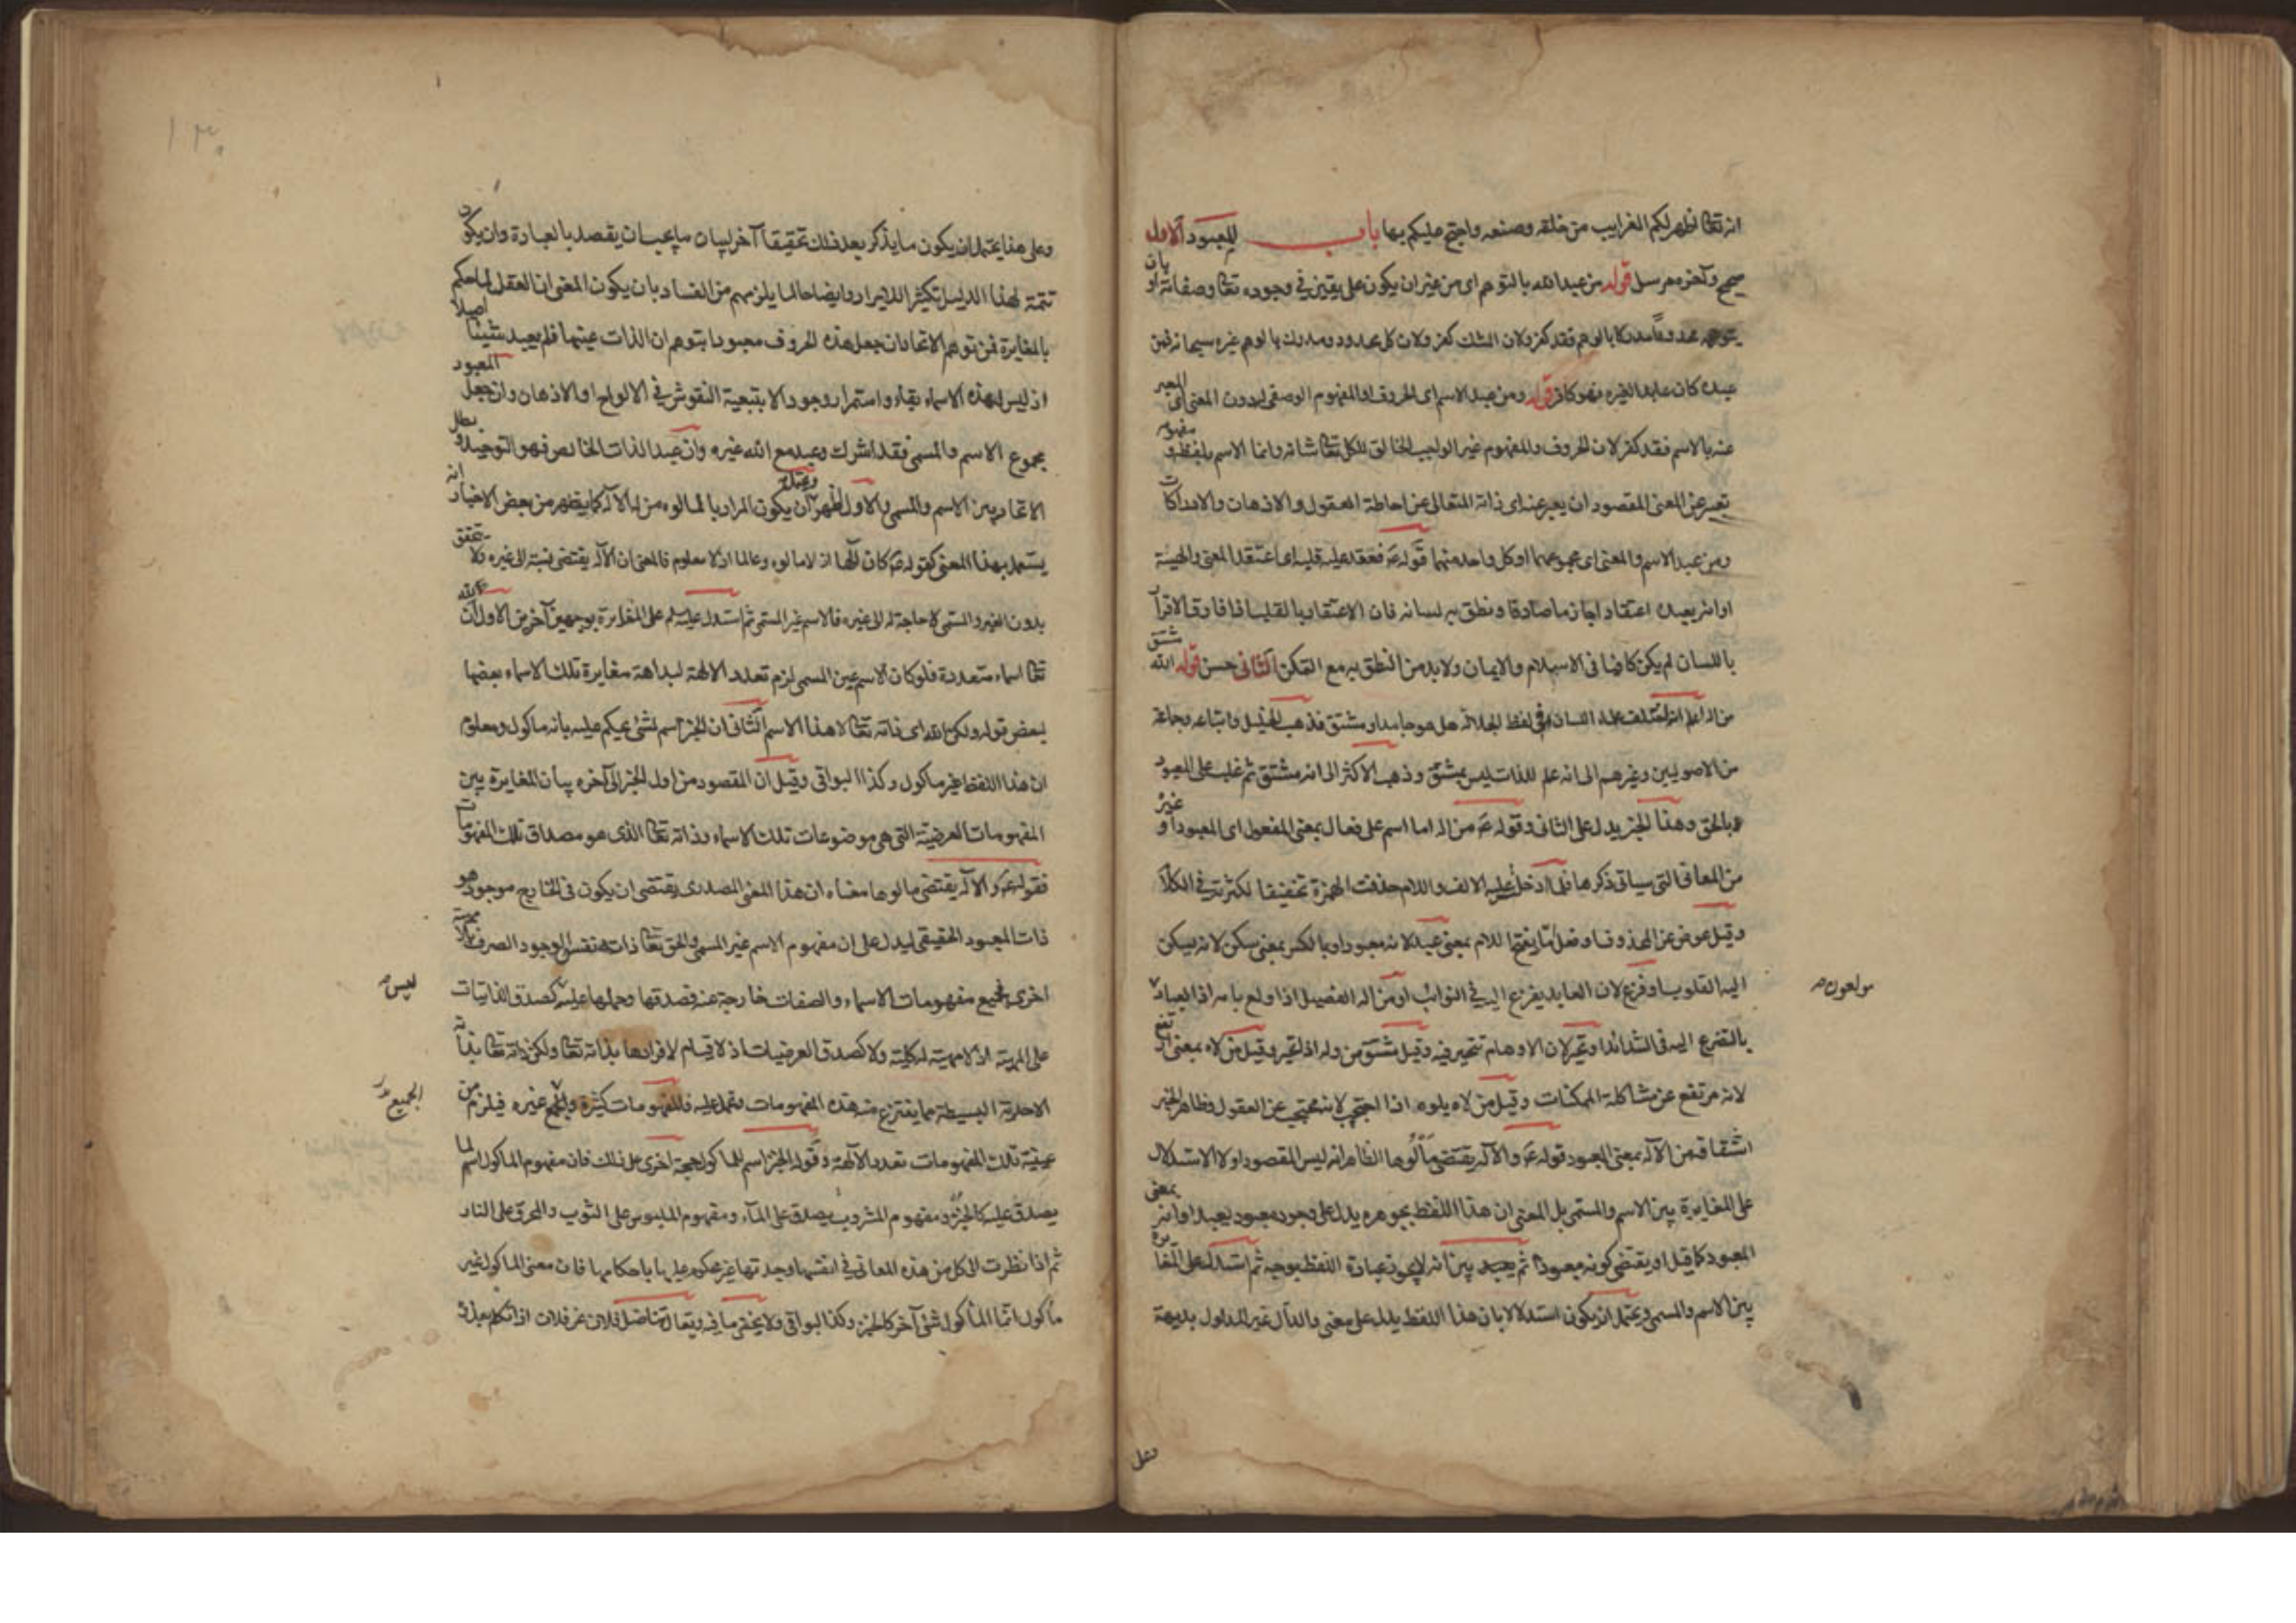 انه تعالى اظهر لكم الغرايب من خلقه وصنعه واحتج عليكم بها باب المعبود الاول
صحيح وآخره مرسل قوله من عبد الله بالتوهم اى من غير ان يكون على يقين فى وجوده تعالى وصفاته او بان
يتوهمه محدودا مدركا بالوهم فقد كفر لان الشك كفر ولان كل محدود ومدرك بالوهم غيره سبحانه فمن
عبده كان عابدا لغيره فهو كافر قوله ومن عبد الاسم اى الحروف او المفهوم الوصفى له دون المعنى اى المعبر
عنه بالاسم فقد كفر لان الحروف والمفهوم غير الواجب الخالق للكل تعالى شانه وانما الاسم بلفظه و مفهومه
تعبير عن المعنى المقصود ان يعبر عنه اى ذاته المتعالى عن احاطة العقول والاذهان والادراكات
ومن عبد الاسم والمعنى اى مجموعهما او كل واحد منهما قوله ع فعقد عليه قلبه اى اعتقد المعنى والهيئة
او انه يعبده اعتقادا جازما صادقا ونطق به لسانه فان الاعتقاد بالقلب اذا فارق الاقرار
باللسان لم يكن كافيا فى الاسلام والايمان ولا بد من النطق به مع التمكن الثانى حسن قوله الله مشتق
من اله اعلم انه اختلف علماء اللسان فى لفظ الجلالة هل هو جامد او مشتق فذهب الخليل واتباعه وجماعة
من الاصوليين وغيرهم الى انه علم للذات ليس بمشتق وذهب الاكثر الى انه مشتق ثم غلب على المعبود
بالحق وهذا الخبر يدل على الثانى وقوله ع من اله اما اسم على فعال بمعنى المفعول اى المعبود او غيره
من المعانى التى سياتى ذكرها فلما ادخل عليه الالف واللام حذفت الهمزة تخفيفا لكثرته فى الكلام
وقيل عوض عن المحذوف او فعل اما بفتح اللام بمعنى عبد لانه معبود او بالكسر بمعنى سكن لانه يسكن
اليه القلوب او فزع لان العابد يفزع اليه فى النوائب او من اله الفصيل اذا ولع بامه اذ العباد
مولعون
بالتضرع اليه فى الشدائد او تحير لان الاوهام تتحير فيه وقيل مشتق من وله اذا تحير وقيل من لاه بمعنى ارتفع
لانه مرتفع عن مشاكلة الممكنات وقيل من لاه يلوه اذا احتجب لانه محتجب عن العقول وظاهر الخبر
اشتقاقه من الاله بمعنى المعبود قوله ع والاله يقتضى مألوها الظاهر انه ليس المقصود اولا الاستدلال
على المغايرة بين الاسم والمسمى بل المعنى ان هذا اللفظ بجوهره يدل على وجود معبود يعبد او انه بمعنى
المعبود كما قيل او يقتضى كونه معبودا ثم بين انه لا يجوز عبادة اللفظ بوجه ثم استدل على المغايرة
بين الاسم والمسمى ويحتمل ان يكون استدلالا بان هذا اللفظ يدل على معنى والدال غير المدلول بديهة
وعلى
وعلى هذا يحتمل ان يكون ما يذكر بعد ذلك تحقيقا آخر لبيان ما يجب ان يقصد بالعبادة وان يكون
تتمة لهذا الدليل تكثيرا للايراد وايضاحا لما يلزمهم من الفساد بان يكون المعنى ان العقل لما حكم
بالمغايرة فمن توهم الاتحاد ان جعل هذه الحروف معبودا بتوهم ان الذات عينها فلم يعبد شيئا اصلا
اذ ليس لهذه الاسماء بقاء واستمرار وجود الا بتبعية النقوش فى الالواح او الاذهان وان جعل المعبود
مجموع الاسم والمسمى فقد اشرك وعبد مع الله غيره وان عبد الذات الخالص فهو التوحيد و بطل
الاتحاد بين الاسم والمسمى والاول اظهر ويحتمل ان يكون المراد بالمالوه من له الاله كما يظهر من بعض الاخبار انه
يستعمل بهذا المعنى كقوله ع كان الها اذ لا مالوه وعالما اذ لا معلوم فالمعنى ان الاله يقتضى نسبة الى غيره ولا يتحقق
بدون الغير والمسمى لا حاجة له الى غيره فالاسم غير المسمى ثم استدل عليه لم على المغايرة بوجهين آخرين الاول ان لله
تعالى اسماء متعددة فلو كان الاسم عين المسمى لزم تعدد الالهة لبداهة مغايرة تلك الاسماء بعضها
لبعض قوله ولكن الله اى ذاته تعالى لا هذا الاسم الثانى ان الخبز اسم لشئ يحكم عليه بانه ماكول ومعلوم
ان هذا اللفظ غير ماكول وكذا البواقى وقيل ان المقصود من اول الخبر الى آخره بيان المغايرة بين
المفهومات العرضية التى هى موضوعات تلك الاسماء وذاته تعالى الذى هو مصداق تلك المفهومات
فقوله ع والاله يقتضى مالوها معناه ان هذا المعنى المصدرى يقتضى ان يكون فى الخارج موجود هو
ذات المعبود الحقيقى ليدل على ان مفهوم الاسم غير المسمى والحق تعالى ذاته نفس الوجود الصرف بلا مهية
اخرى فجميع مفهومات الاسماء والصفات خارجة عنه فصدقها وحملها عليه كصدق الذاتيات
ليس
على المهية اذ لا مهية له كلية ولا كصدق العرضيات اذ لا قيام لافرادها بذاته تعالى ولكن ذاته تعالى بذاته
الاحدية البسيطة مما ينتزع منه هذه المفهومات وتحمل عليه فالمفهومات كثيرة والجميع غيره فيلزم من
الجميع
عينية تلك المفهومات تعدد الآلهة وقوله الخبز اسم للماكول حجة اخرى على ذلك فان مفهوم الماكول اسم لما
يصدق عليه كالخبز ومفهوم المشروب يصدق على الماء ومفهوم الملبوس على الثوب والمحرق على النار
ثم اذا نظرت الى كل من هذه المعانى فى انفسها وجدتها غير محكوم عليها باحكامها فان معنى الماكول غير
مأكول انما المأكول شئ آخر كالخبز وكذا البواقى ولا يخفى ما فيه ويقال تناضل فلان عن فلان اذا تكلم بعذره